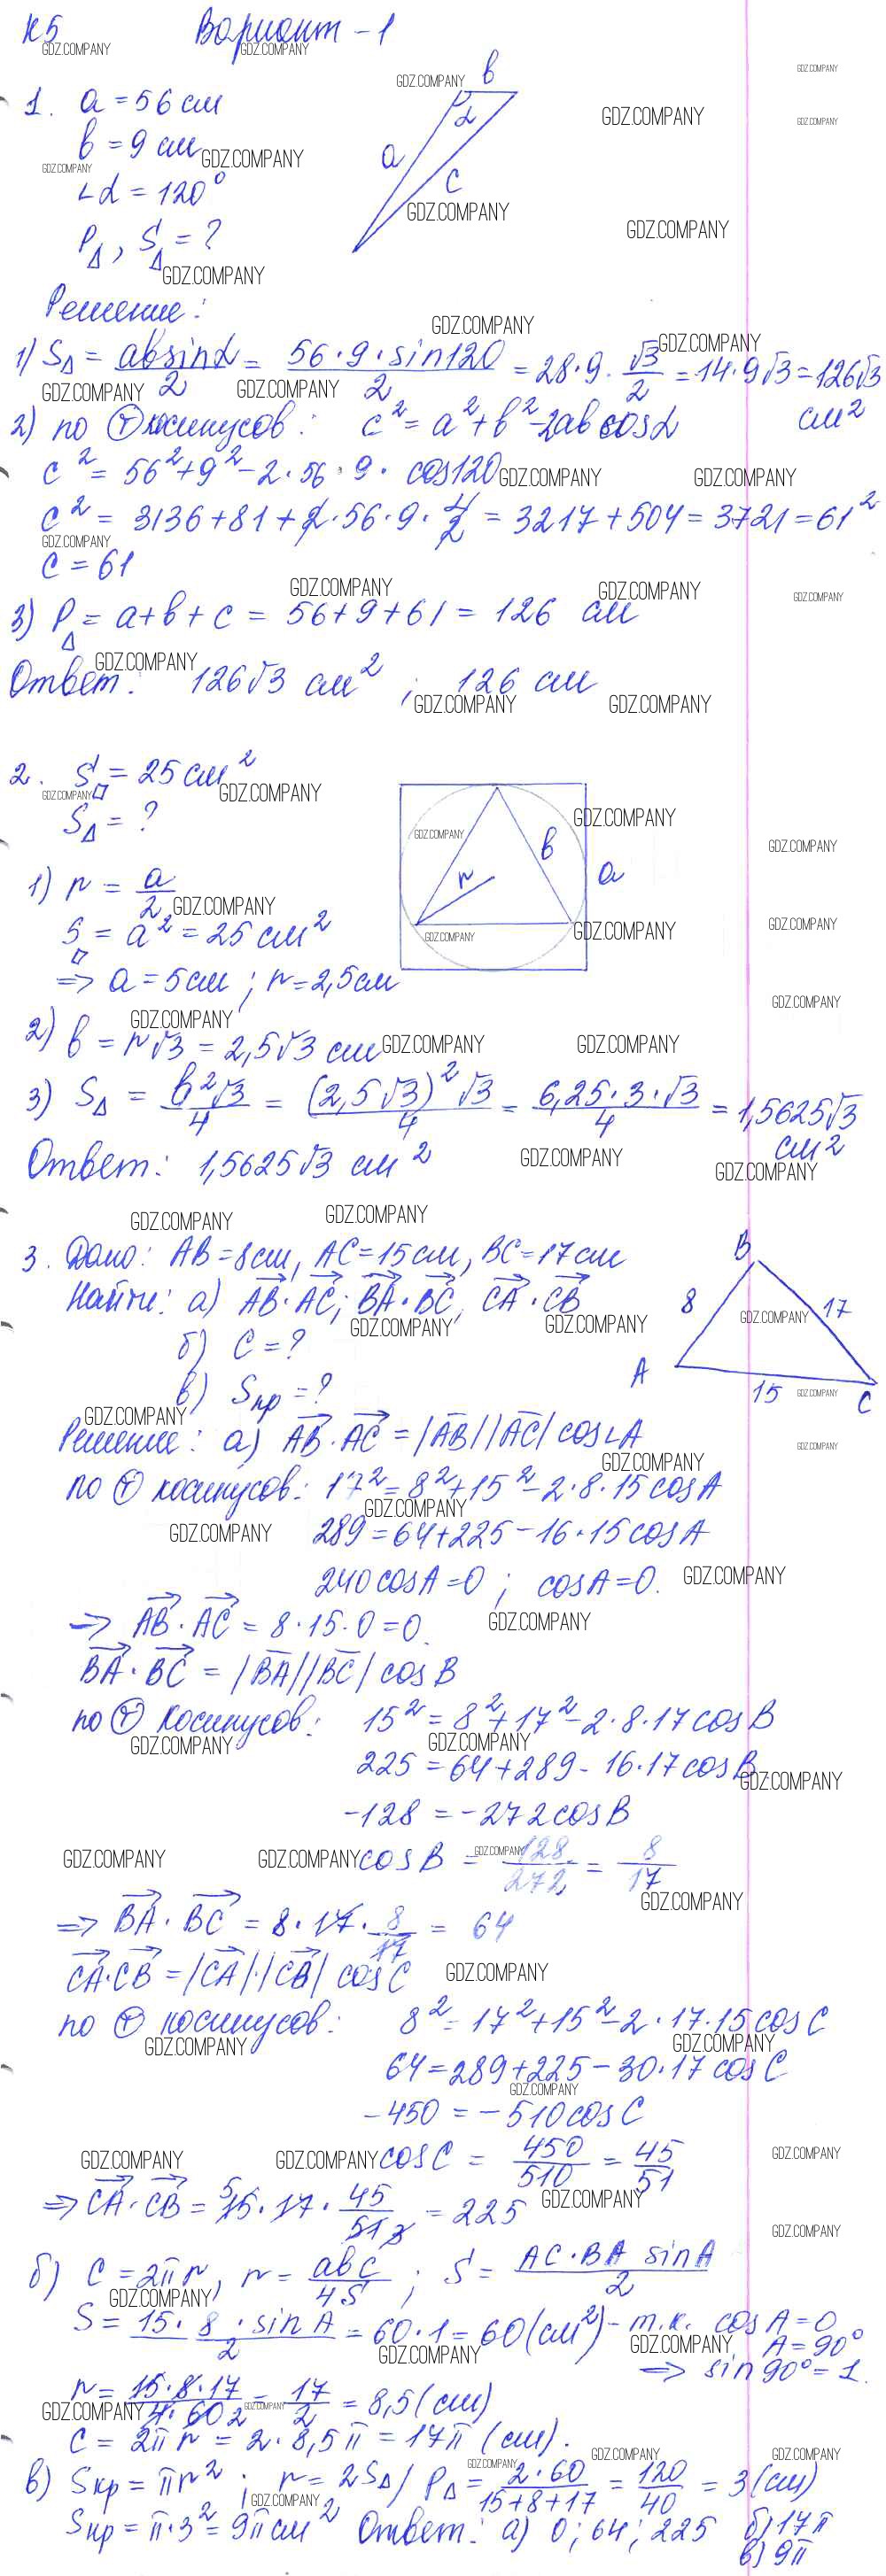 К5 Вариант -1
1. a = 56 см
b = 9 см
∠α = 120°
P△, S△ = ?
b
α
a
c
Решение:
1) S△ = ab sinα/2 = 56·9·sin120/2 = 28·9·√3/2 = 14·9√3 = 126√3 см²
2) по Ⓣ косинусов: c² = a² + b² - 2ab cosα
c² = 56² + 9² - 2·56·9·cos120
c² = 3136 + 81 + 2·56·9·1/2 = 3217 + 504 = 3721 = 61²
c = 61
3) P△ = a + b + c = 56 + 9 + 61 = 126 см
Ответ: 126√3 см² ; 126 см
2. S□ = 25 см²
S△ = ?
b
r
a
1) r = a/2
S□ = a² = 25 см²
=> a = 5 см ; r = 2,5 см
2) b = r√3 = 2,5√3 см
3) S△ = b²√3/4 = (2,5√3)²√3/4 = 6,25·3·√3/4 = 1,5625√3 см²
Ответ: 1,5625√3 см²
3. Дано: AB = 8 cm, AC = 15 cm, BC = 17 cm
Найти: а) AB·AC; BA·BC, CA·CB
б) C = ?
в) Sкр = ?
B
8
17
A
15
C
Решение: а) AB·AC = |AB||AC| cos∠A
по Ⓣ косинусов: 17² = 8² + 15² - 2·8·15 cos A
289 = 64 + 225 - 16·15 cos A
240 cos A = 0 ; cos A = 0.
=> AB·AC = 8·15·0 = 0.
BA·BC = |BA||BC| cos B
по Ⓣ косинусов: 15² = 8² + 17² - 2·8·17 cos B
225 = 64 + 289 - 16·17 cos B
-128 = -272 cos B
cos B = 128/272 = 8/17
=> BA·BC = 8·17·8/17 = 64
CA·CB = |CA|·|CB| cos C
по Ⓣ косинусов: 8² = 17² + 15² - 2·17·15 cos C
64 = 289 + 225 - 30·17 cos C
-450 = -510 cos C
cos C = 450/510 = 45/51
=> CA·CB = 15·17·45/51 = 225
б) C = 2πr, r = abc/4S ; S = AC·BA sin A/2
S = 15·8·sin A/2 = 60·1 = 60 (см²) - т.к. cos A = 0
A = 90°
=> sin 90° = 1.
r = 15·8·17/4·60 = 17/2 = 8,5 (cm)
C = 2πr = 2·8,5π = 17π (cm).
в) Sкр = πr² ; r = 2S△/P△ = 2·60/15+8+17 = 120/40 = 3 (cm)
Sкр = π·3² = 9π см² Ответ: а) 0; 64; 225 б) 17π
в) 9π
GDZ.COMPANY